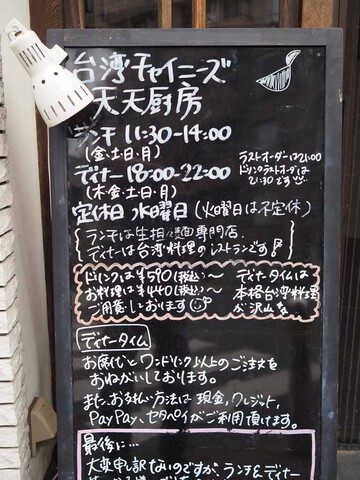 台湾チャイニーズ
天天厨房
ランチ 11:30-14:00
(金・土・日・月)
ディナー 18:00-22:00
(木・金・土・日・月)
ラストオーダーは21:00
ドリンクラストオーダーは
21:30です
定休日 水曜日 (火曜日は不定休)
ランチは担担麺専門店、
ディナーは台湾料理のレストランです!
ドリンクは¥590(税込)〜
お料理は¥440(税込)〜
ご用意しております
ディナータイムは
本格台湾料理
が沢山
ディナータイム
お席代とワンドリンク以上のご注文を
おねがいしております。
また、お支払い方法は現金、クレジット、
PayPay、セタペイがご利用頂けます。
最後に…
大変申し訳ないのですが、ランチ&ディナー